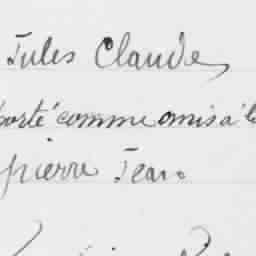 Jules Claude,
porté comme omis à l
pierre Jean